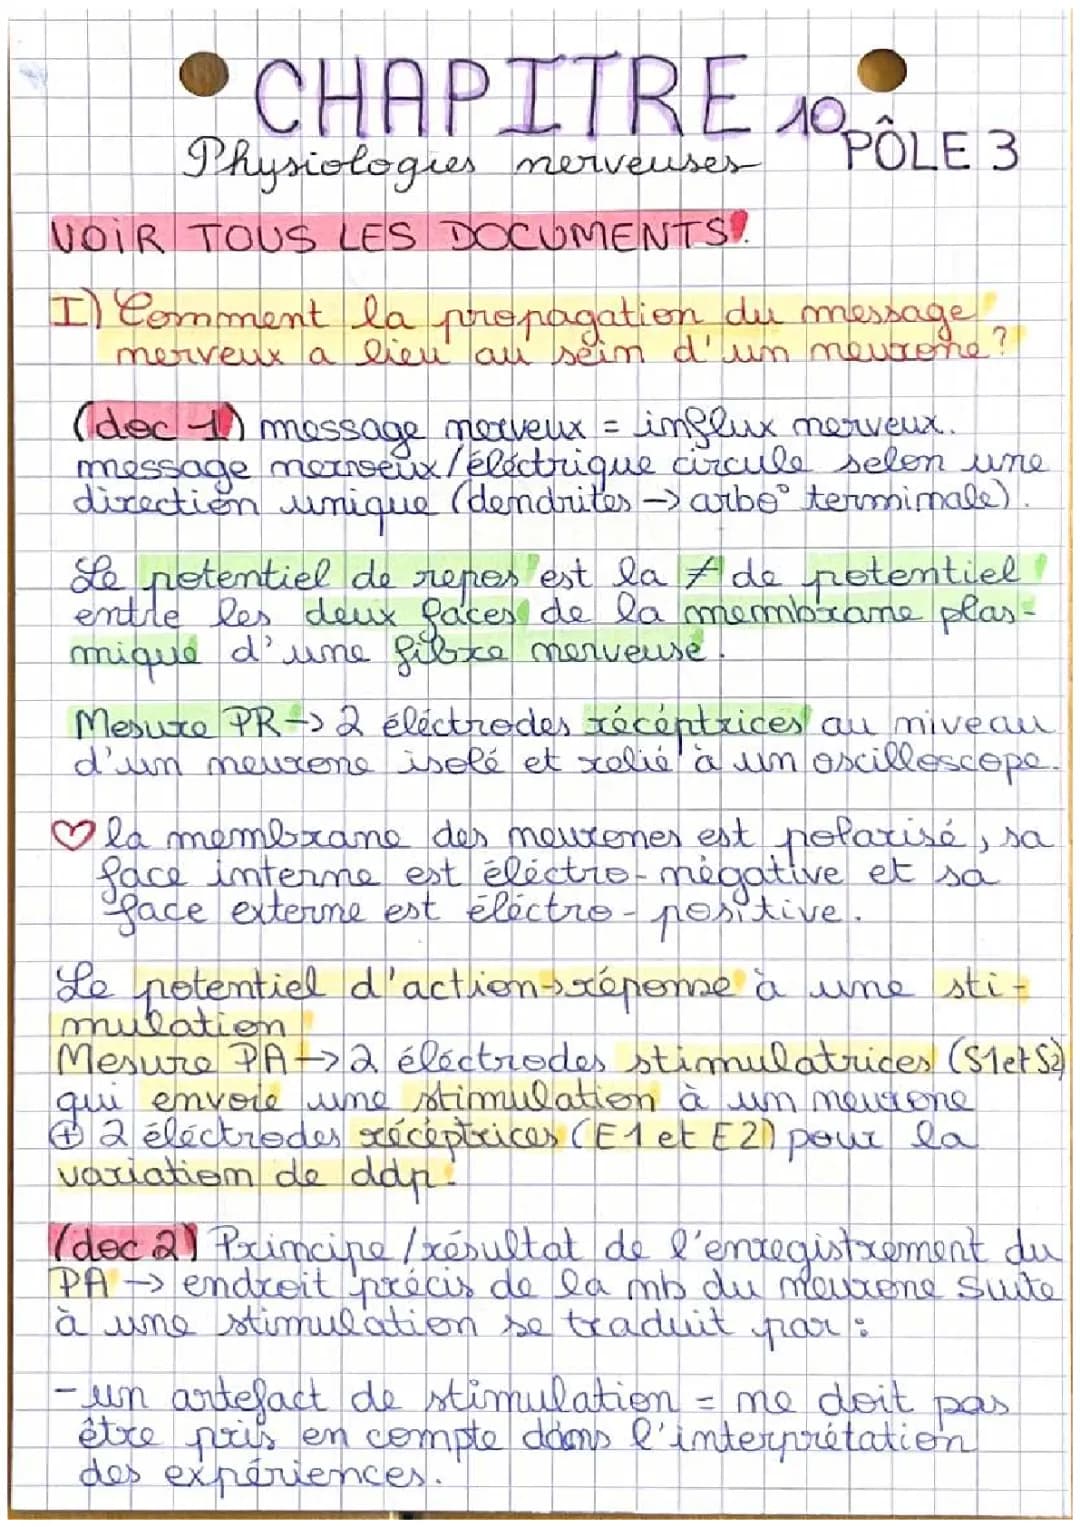 CHAPITRE 10
Physiologies nerveuses
PÔLE 3
VOIR TOUS LES DOCUMENTS!
I) Comment la propagation du message
nerveux a lieu au sein d'un neurone?
(doc 1) message nerveux = influx nerveux.
message nerveux/éléctrique circule selon une
direction unique (dendrites → arbo° terminale).
Le potentiel de repos est la ≠ de potentiel
entre les deux faces de la membrane plas-
mique d'une fibre nerveuse.
Mesure PR → 2 éléctrodes récéptrices au niveau
d'un neurone isolé et relié à un oscilloscope.
♡ la membrane des neurones est polarisé, sa
face interne est éléctro-négative et sa
face externe est éléctro-positive.
Le potentiel d'action → réponse à une sti-
mulation
Mesure PA → 2 éléctrodes stimulatrices (S1 et S2)
qui envoie une stimulation à un neurone
⊕ 2 éléctrodes récéptrices (E1 et E2) pour la
variation de ddp.
(doc 2) Principe/résultat de l'enregistrement du
PA → endroit précis de la mb du neurone suite
à une stimulation se traduit par :
- un artefact de stimulation = ne doit pas
être pris en compte dans l'interprétation
des expériences.